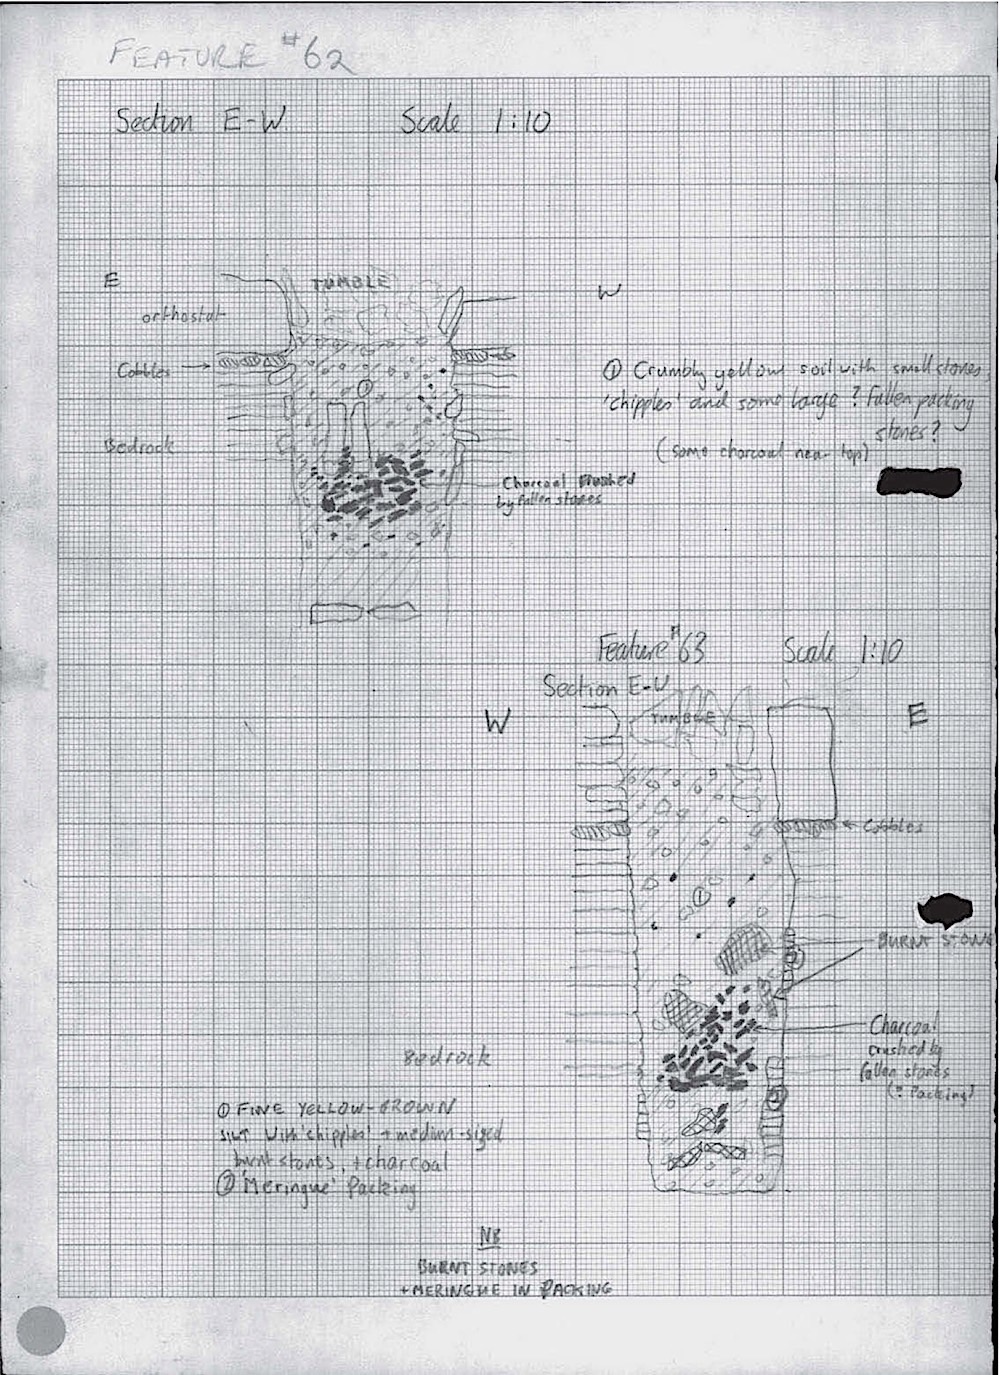 FEATURE #62
Section E-W Scale 1:10
E
TUMBLE
W
orthostat
Cobbles
①
Bedrock
① Crumbly yellow soil with small stones,
'chipples' and some large ? fallen packing
stones?
(some charcoal near top)
Charcoal crushed
by fallen stones
Feature #63 Scale 1:10
Section E-W
W
TUMBLE
E
Cobbles
①
BURNT STONE
②
Charcoal
crushed by
fallen stones
(? Packing)
②
Bedrock
① FINE YELLOW-BROWN
SILT with 'chipples' + medium-sized
burnt stones, + charcoal
② 'Meringue' Packing
NB
BURNT STONES
+ MERINGUE IN PACKING